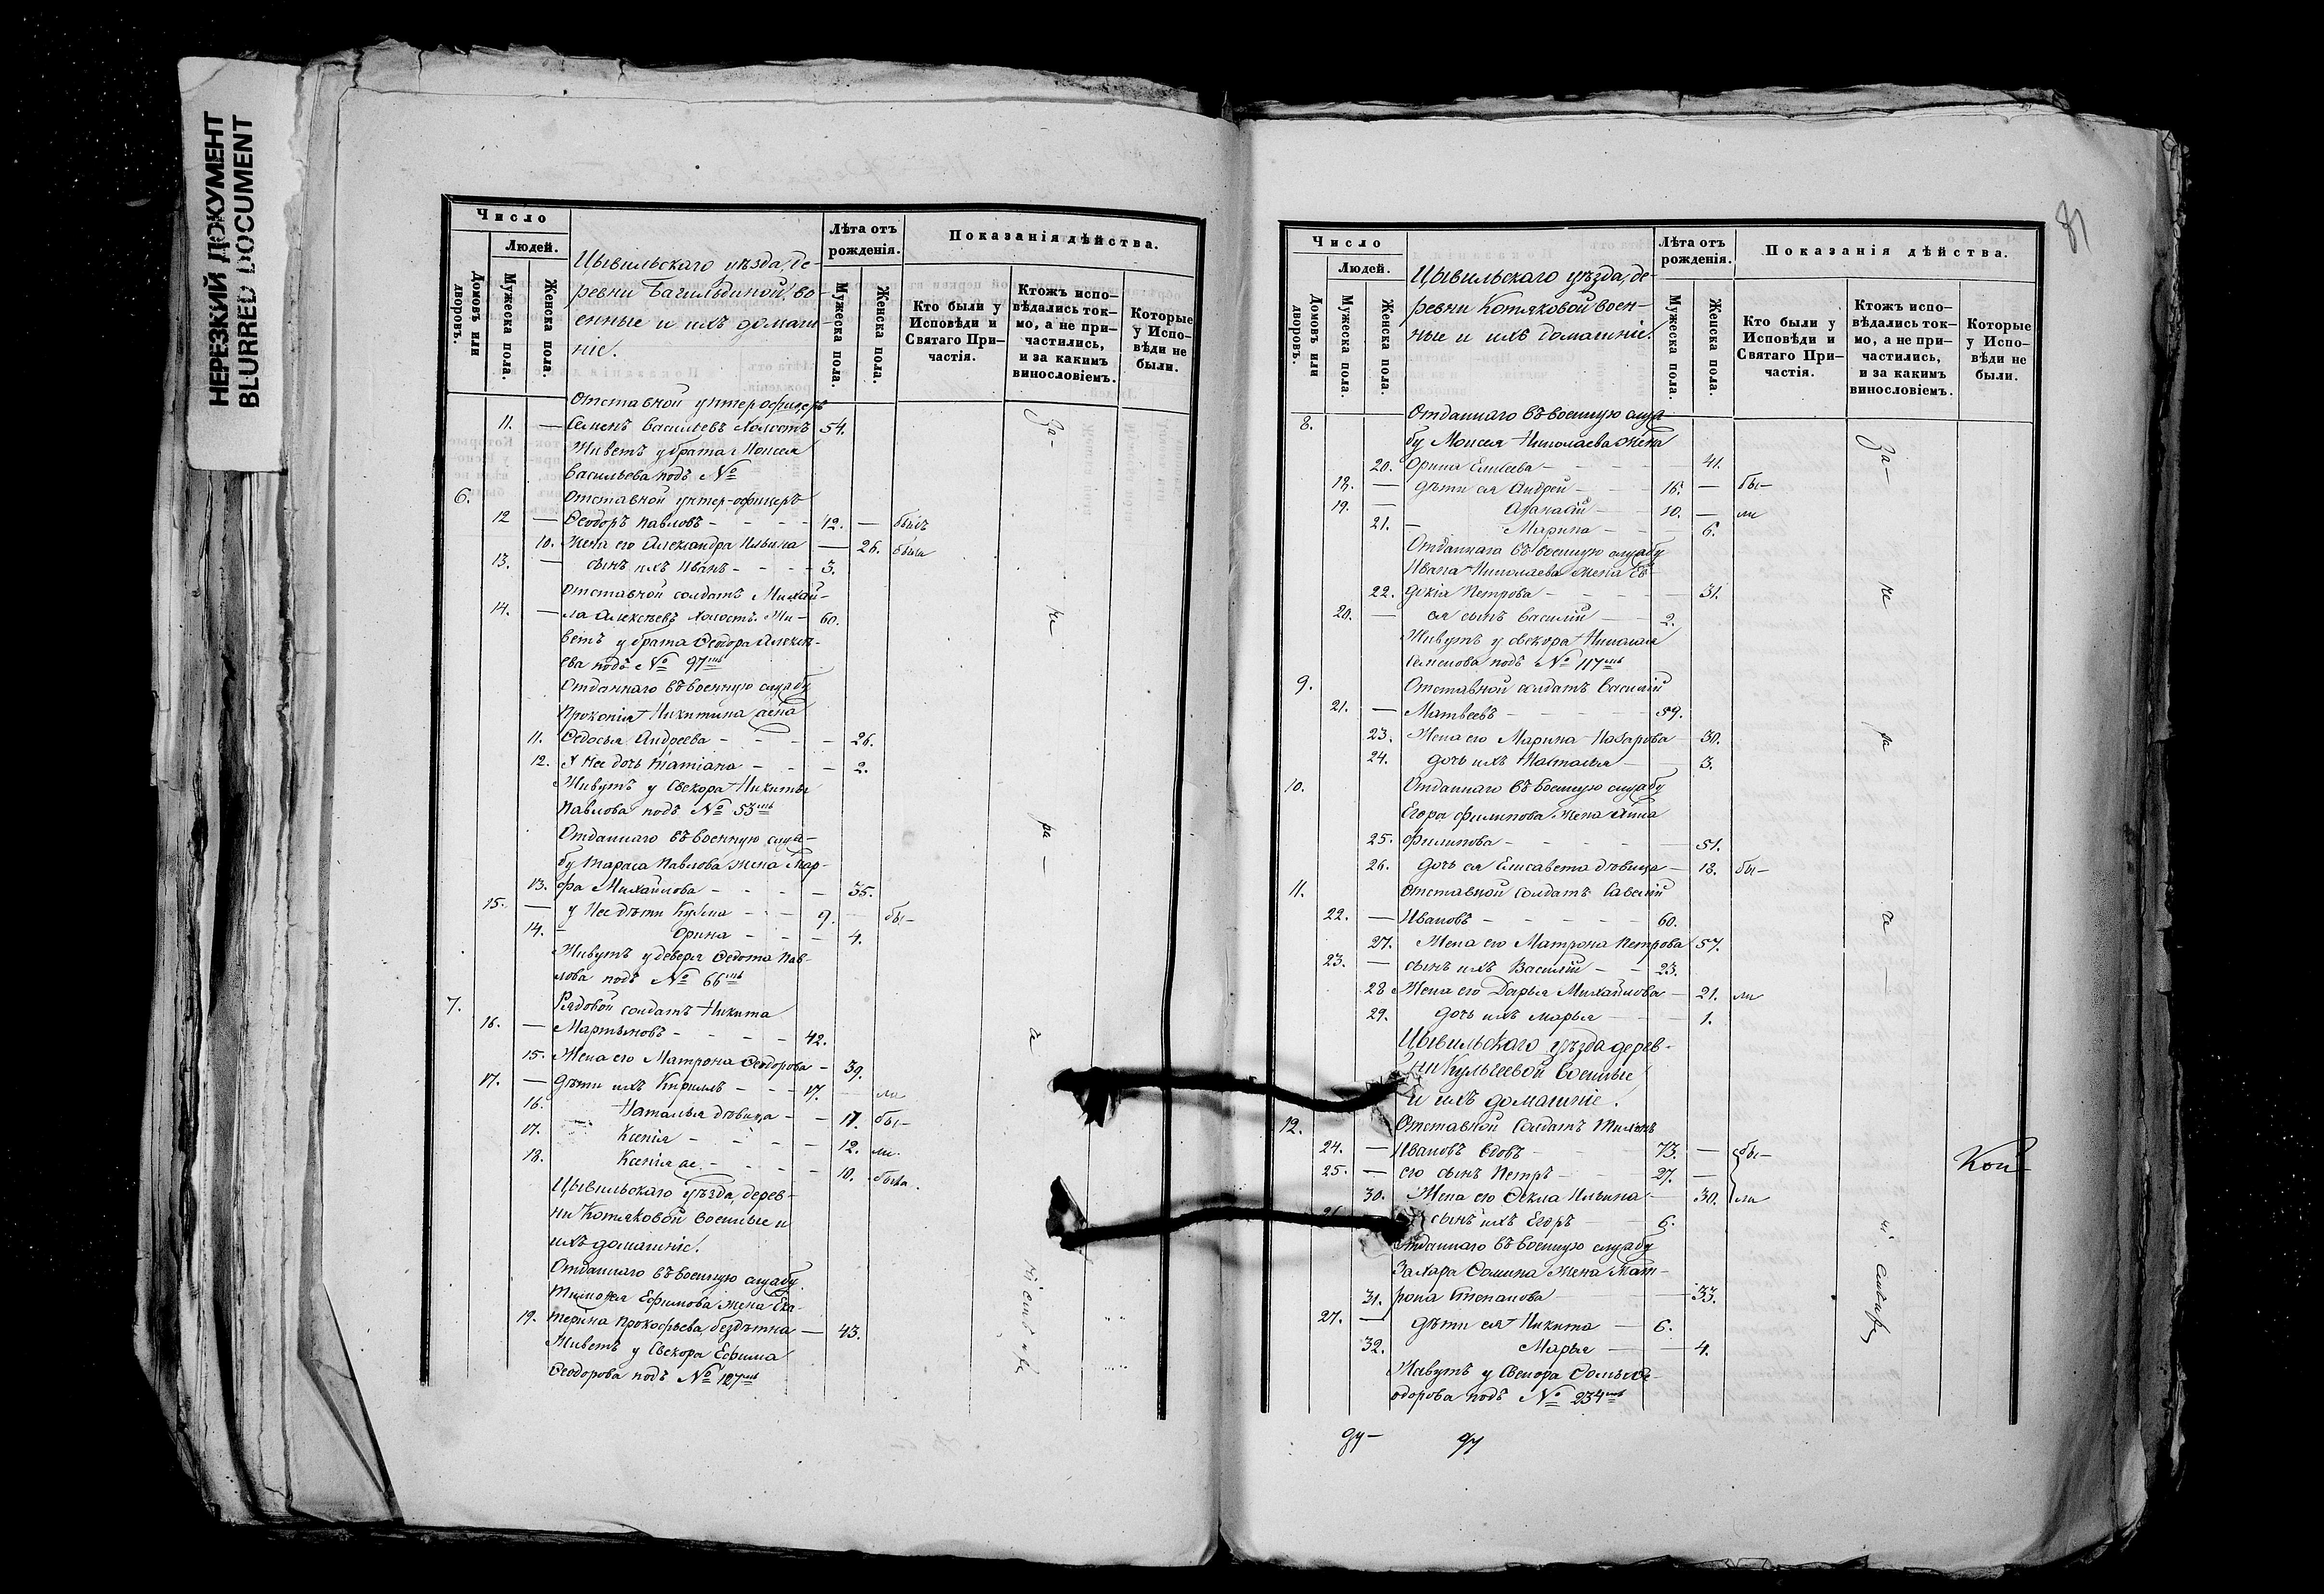 НЕРЕЗКИЙ ДОКУМЕНТ
BLURRED DOCUMENT
Число
Людей.
Домовъ или дворовъ.
Мужеска пола.
Женска пола.
Цывильскаго уѣзда, де-
ревни Багильдиной, во-
енные и ихъ домаш-
ніе.
Лѣта отъ рожденія.
Мужеска пола.
Женска пола.
Показанія дѣйства.
Кто были у Исповѣди и Святаго При-частія.
Ктожъ испо-вѣдались ток-мо, а не при-частились, и за какимъ винословіемъ.
Которые у Испо-вѣди не были.
Отставной унтерофицеръ
11. — Семенъ Васильевъ холостъ 54.
Живетъ у брата Моисея
Васильева подъ №
6. Отставной унтер-офицеръ
12 — Ѳеодоръ Павловъ - - - - 42. — былъ
10. Жена его Александра Ильина — 26. была
13. — сынъ ихъ Иванъ - - - - 3.
Отставной солдатъ Михай-
14. — ла Алексѣевъ холостъ. Жи- 60.
ветъ у брата Ѳеодора Алексѣ-
ева подъ № 97мъ
Отданнаго въ военную службу
Прокопія Никитина жена
11. Ѳедосья Андреева - - - - 26.
12. У нее дочь Татіана - - - 2.
Живутъ у свекора Никиты
Павлова подъ № 53мъ
Отданнаго въ военную служ-
бу Тараса Павлова жена Мар-
13. фа Михайлова - - - - 35.
15. — у нее дѣти Кузма - - - 9. бы-
14. — Орина - - - 4.
Живутъ у деверя Ѳедота Пав-
лова подъ № 66мъ
7. Рядовой солдатъ Никита
16. — Мартыновъ - - - - 42.
15. Жена его Матрона Ѳеодорова - 39.
17. — дѣти ихъ Кириллъ - - - 17. ли
16. — Наталья дѣвица - - 17. бы-
17. Ксенія - - - - 12. ли.
18. Ксенія же - - - - 10. была.
Цывильскаго уѣзда, дерев-
ни Котяковой военные и
ихъ домашніе.
Отданнаго въ военную службу
Тимофея Ефимова жена Ека-
19. терина Прокофьева, бездѣтна — 43.
Живетъ у свекора Ефима
Ѳеодорова подъ № 127мъ
За-
не
ра
81
Число
Людей.
Домовъ или дворовъ.
Мужеска пола.
Женска пола.
Цывильскаго уѣзда, де-
ревни Котяковой воен-
ные и ихъ домашніе.
Лѣта отъ рожденія.
Мужеска пола.
Женска пола.
Показанія дѣйства.
Кто были у Исповѣди и Святаго При-частія.
Ктожъ испо-вѣдались ток-мо, а не при-частились, и за какимъ винословіемъ.
Которые у Испо-вѣди не были.
8. Отданнаго въ военную служ-
бу Моисея Николаева жена
20. Орина Елисеева - - - - 41.
18. — дѣти ея Андрей - - - 16. — бы-
19. — Аѳанасій - - 10. — ли
21. — Марина - - 6.
Отданнаго въ военную службу
Ивана Николаева жена Ев-
22. докія Петрова - - - - 31.
20. — ея сынъ Василій - - 2.
Живутъ у свекора Николая
Семенова подъ № 117мъ
9. Отставной солдатъ Василій
21. — Матвеевъ - - - - 59.
23. Жена его Марина Назарова 50.
24. дочь ихъ Наталья - 3.
10. Отданнаго въ военную службу
Егора Филипова жена Анна
25. Филипова - - - - 51.
26. дочь ея Елисавета дѣвица - 18. бы-
11. Отставной солдатъ Савелій
22. — Ивановъ - - - - 60.
27. Жена его Матрона Петрова 57.
23. — сынъ ихъ Василій - - 23.
28 Жена его Дарья Михайлова - 21. ли
29. дочь ихъ Марья - - 1.
Цывильскаго уѣзда дерев-
ни Кульгеевой военные
и ихъ домашніе.
12. Отставной солдатъ
24. — Ивановъ вдовъ - - - 73. — бы-
25. — его сынъ Петръ - - 27. —
30. Жена его Ѳекла Ильина - 30. ли
26. сынъ ихъ Егоръ - - 6.
Отданнаго въ военную службу
Захара Ѳомина жена Мат-
31. рона Степанова - - 33.
27. — дѣти ея Никита - 6.
32. Марья - - 4.
Живутъ у свекора Ѳомы Ѳе-
одорова подъ № 234мъ
За-
не
ра
Кой-
ду- ду